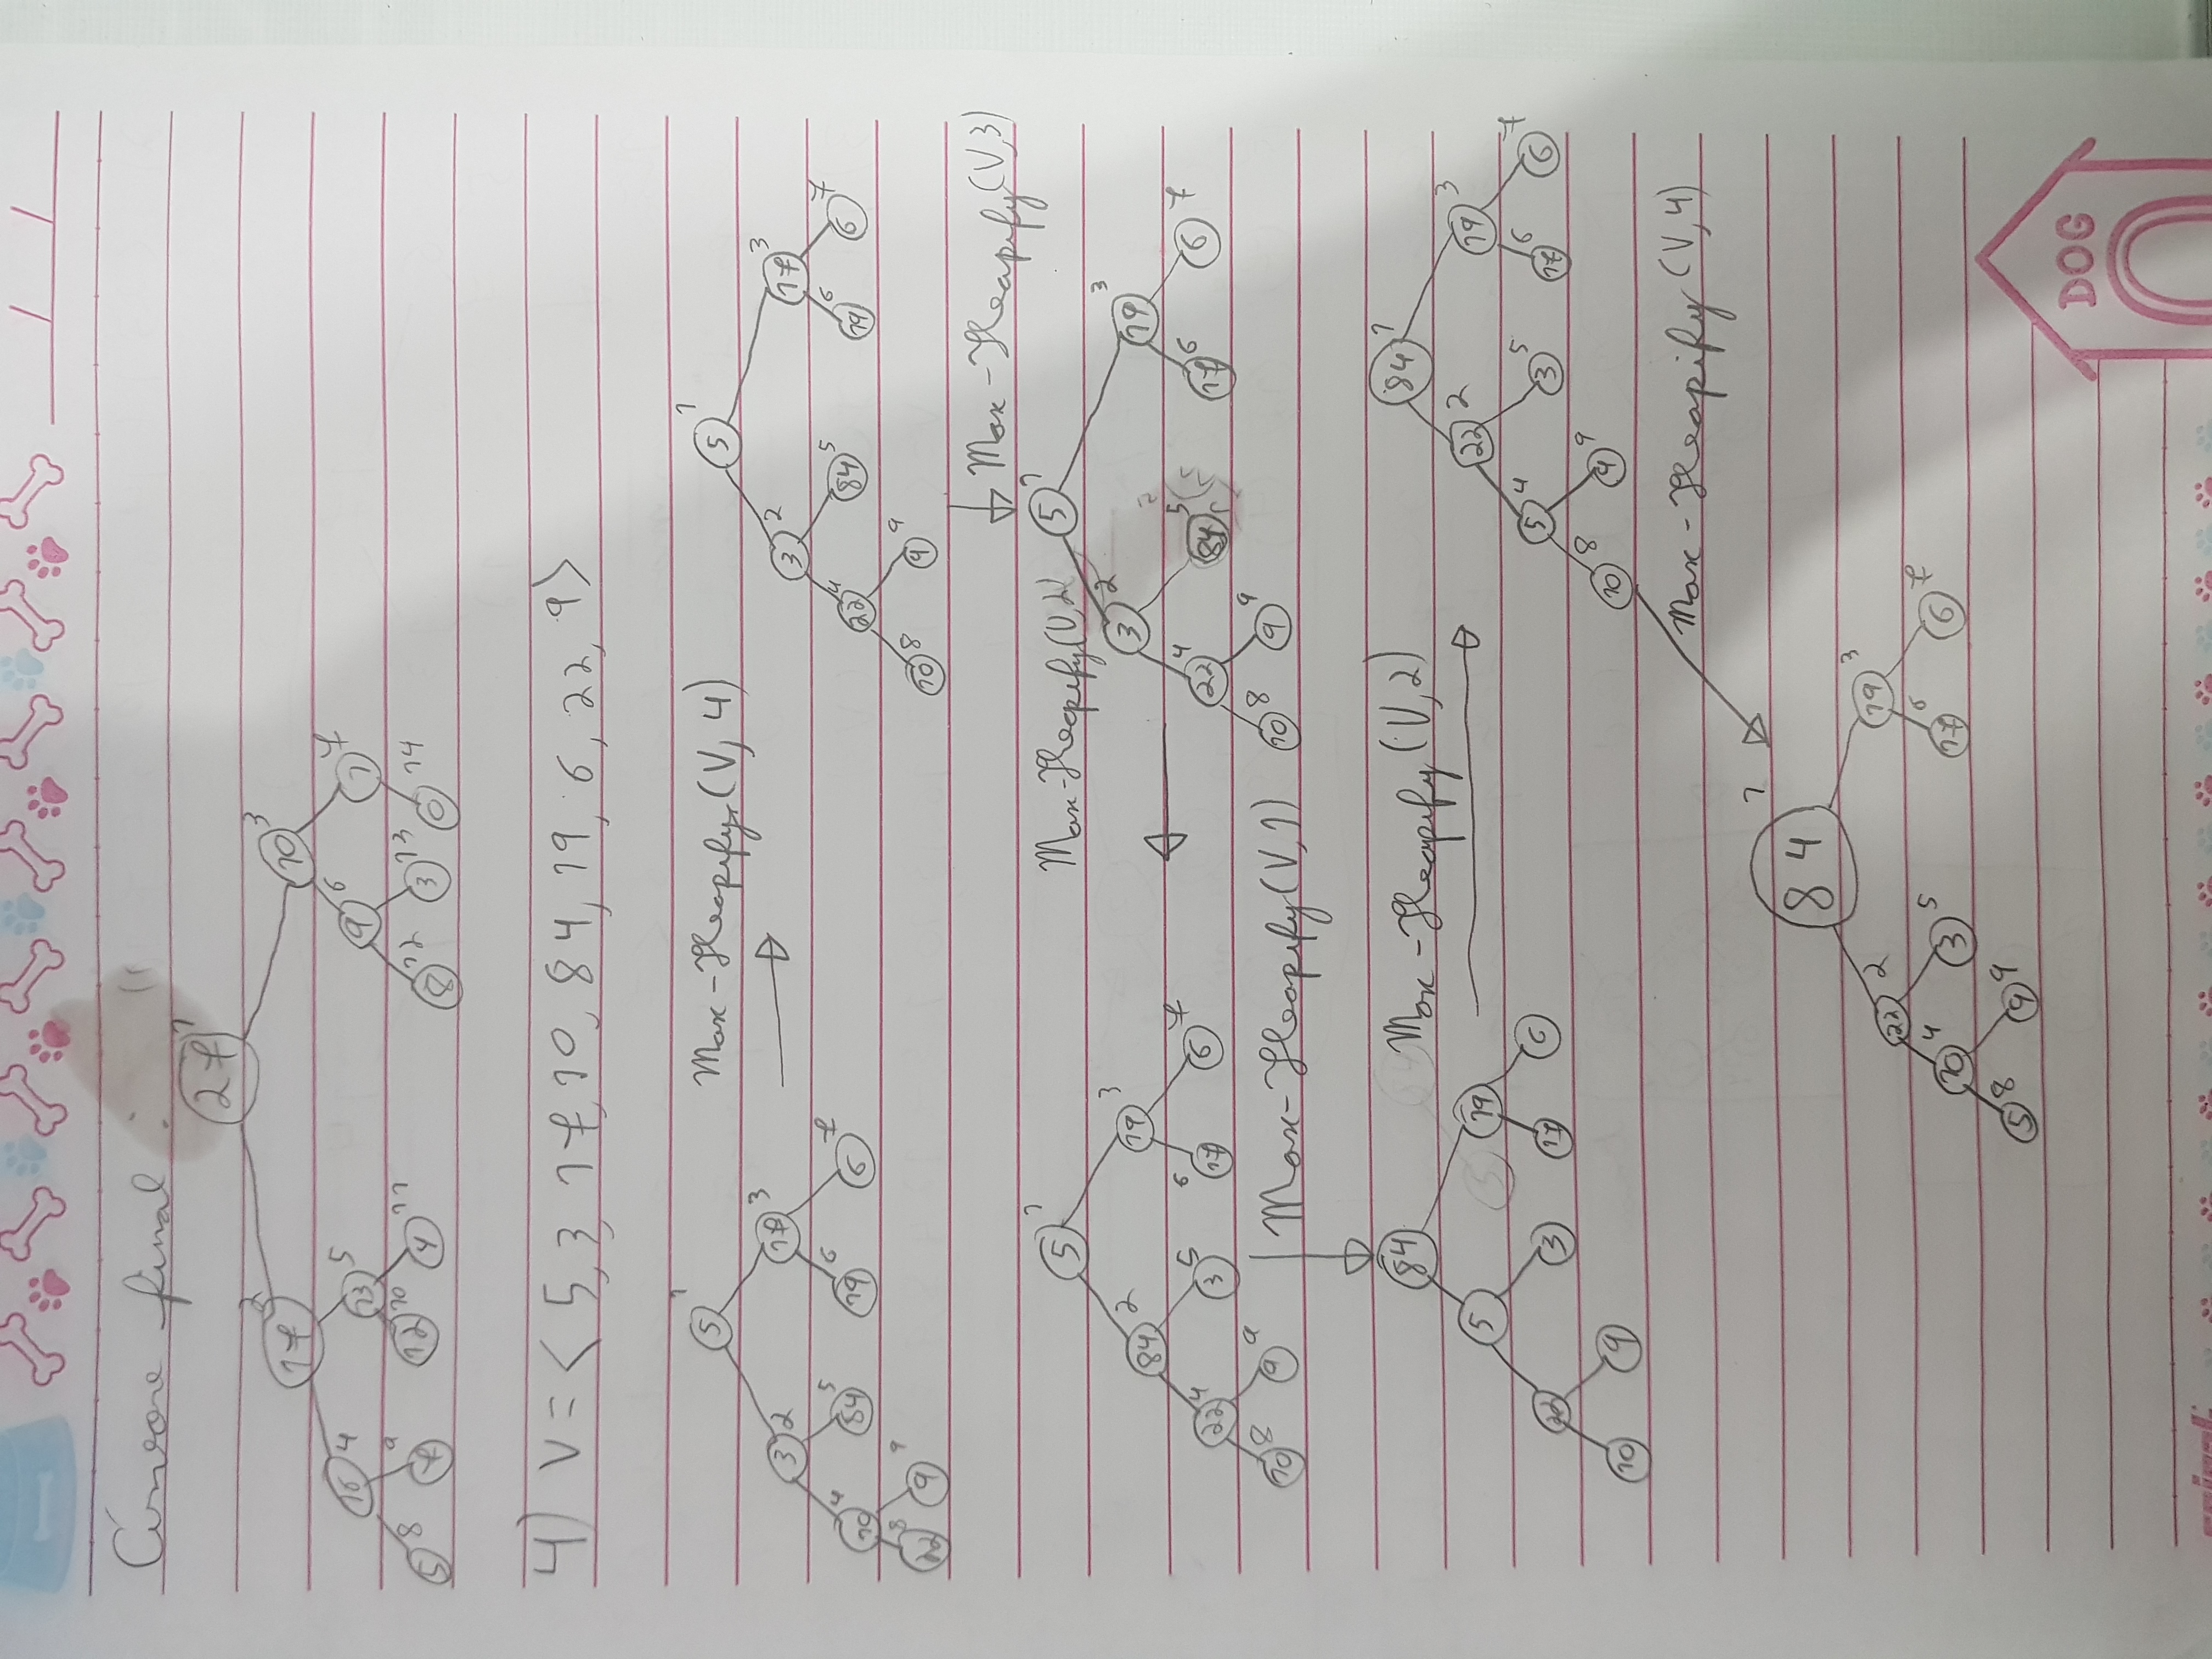 Árvore final :
27 1
17 2 10 3
16 4 13 5 9 6 1 7
5 8 7 9 12 10 4 11 8 12 3 13 0 14
4) V = < 5, 3, 17, 10, 84, 19, 6, 22, 9 >
5 1
3 2 17 3
10 4 84 5 19 6 6 7
22 8 9 9
Max-Heapify (V, 4)
5 1
3 2 17 3
22 4 84 5 19 6 6 7
10 8 9 9
Max-Heapify (V,3)
5 1
3 2 19 3
22 4 84 5 17 6 6 7
10 8 9 9
Max-Heapify (V,2)
5 1
84 2 19 3
22 4 3 5 17 6 6 7
10 8 9 9
Max-Heapify (V,1)
84
5 19
22 3 17 6
10 9
Max-Heapify (V,2)
84 1
22 2 19 3
5 4 3 5 17 6 6 7
10 8 9 9
Max-Heapify (V,4)
84 1
22 2 19 3
10 4 3 5 17 6 6 7
5 8 9 9
DOG